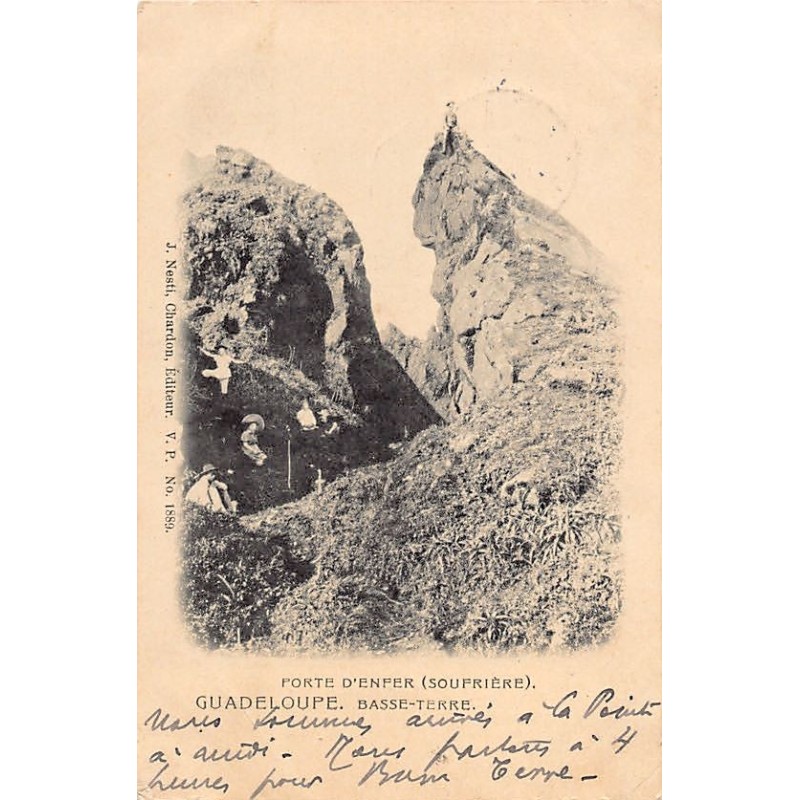 J. Nesti, Chardon, Éditeur. V. P. No. 1889.
PORTE D'ENFER (SOUFRIÈRE).
GUADELOUPE. BASSE-TERRE.
Nous sommes arrivés à la Pointe
à midi - Nous partons à 4
heures pour Basse Terre -